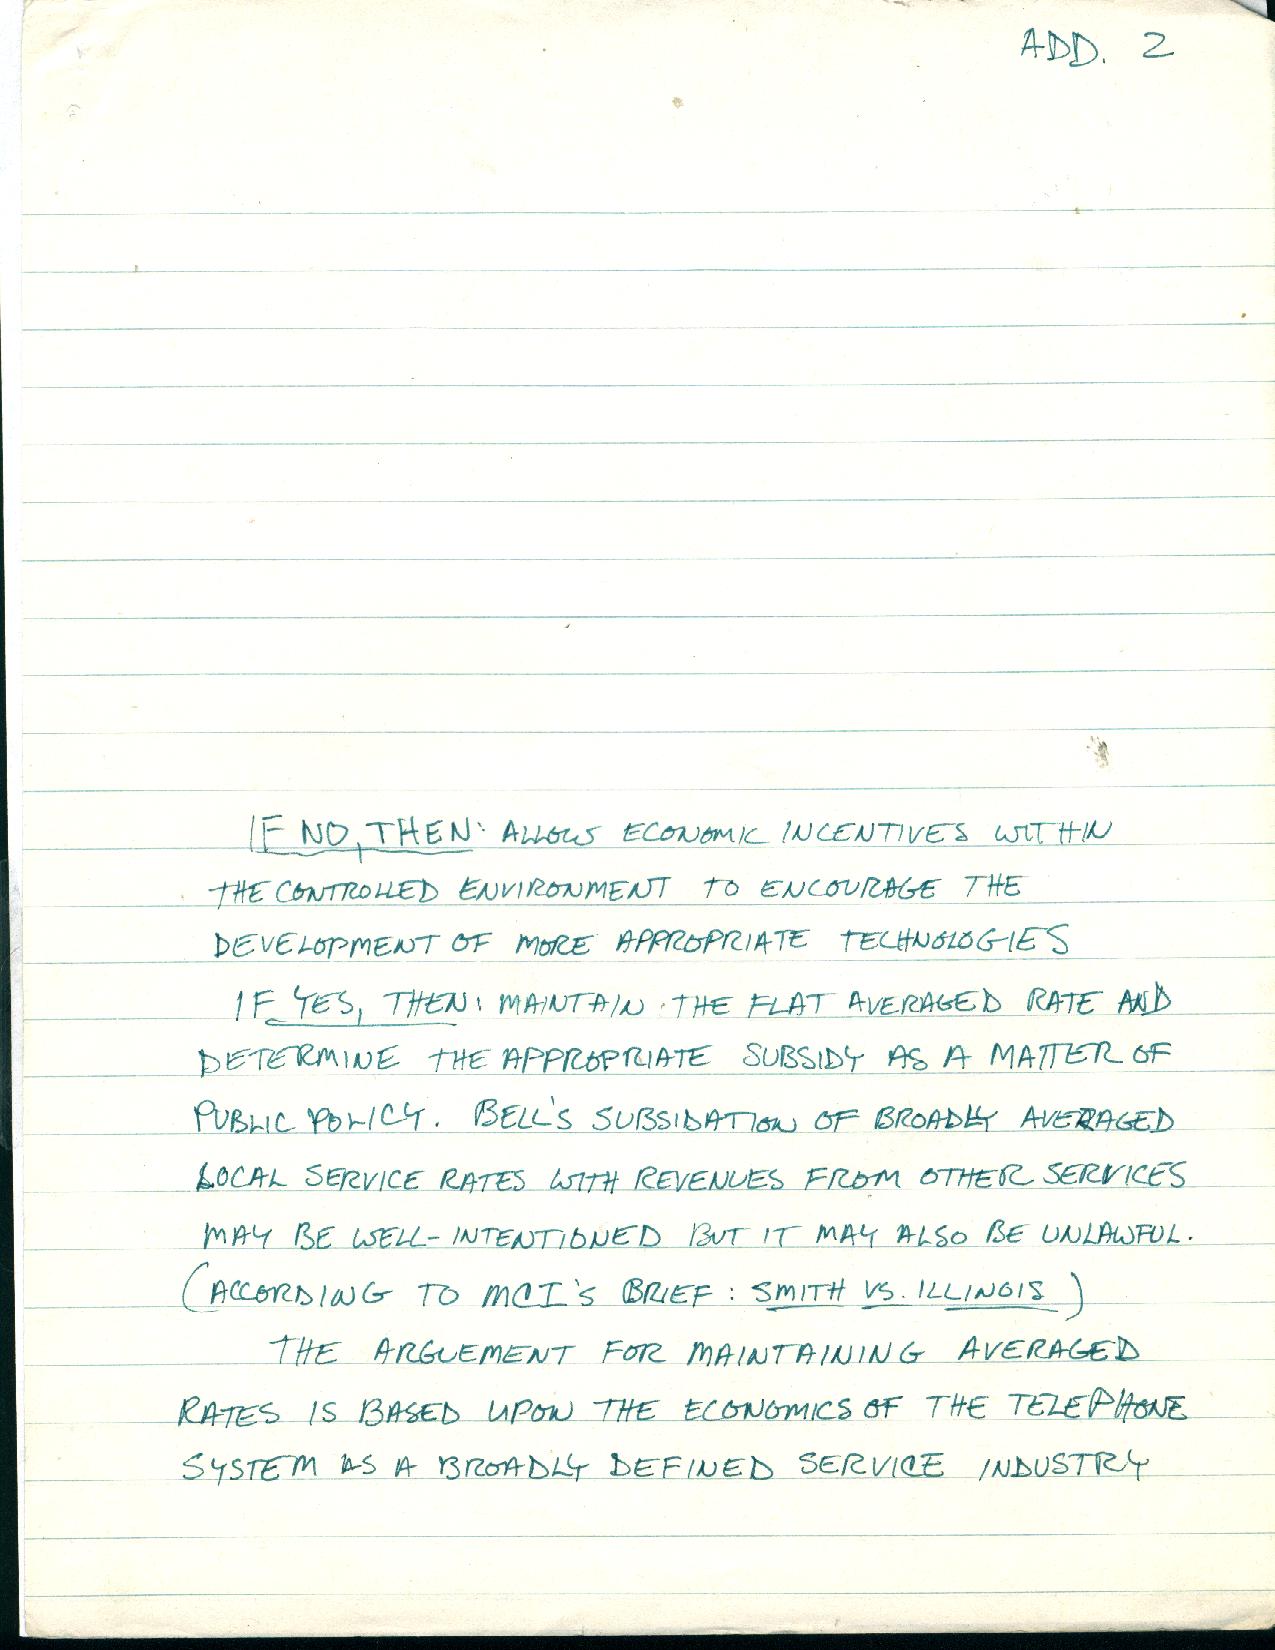 ADD. 2
IF NO, THEN: ALLOWS ECONOMIC INCENTIVES WITHIN
THE CONTROLLED ENVIRONMENT TO ENCOURAGE THE
DEVELOPMENT OF MORE APPROPRIATE TECHNOLOGIES
IF YES, THEN: MAINTAIN THE FLAT AVERAGED RATE AND
DETERMINE THE APPROPRIATE SUBSIDY AS A MATTER OF
PUBLIC POLICY. BELL'S SUBSIDATION OF BROADLY AVERAGED
LOCAL SERVICE RATES WITH REVENUES FROM OTHER SERVICES
MAY BE WELL-INTENTIONED BUT IT MAY ALSO BE UNLAWFUL.
(ACCORDING TO MCI'S BRIEF: SMITH VS. ILLINOIS)
THE ARGUEMENT FOR MAINTAINING AVERAGED
RATES IS BASED UPON THE ECONOMICS OF THE TELEPHONE
SYSTEM AS A BROADLY DEFINED SERVICE INDUSTRY